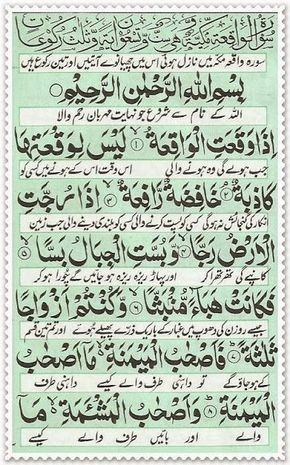 سُوْرَةُ الْوَاقِعَةِ مَكِّيَّةٌ وَّهِيَ سِتٌّ وَّتِسْعُوْنَ اٰيَةً وَّثَلٰثُ رُكُوْعَاتٍ
سورہ واقعہ مکہ میں نازل ہوئی اس میں چھیانوے آیتیں اور تین رکوع ہیں
بِسْمِ اللّٰهِ الرَّحْمٰنِ الرَّحِيْمِ
اللہ کے نام سے شروع جو نہایت مہربان رحم والا
اِذَا وَقَعَتِ الْوَاقِعَةُ ۙ۱ لَيْسَ لِوَقْعَتِهَا
جب ہولے گی وہ ہونے والی اس وقت اس کے ہونے میں کسی کو
كَاذِبَةٌ ۘ۲ خَافِضَةٌ رَّافِعَةٌ ۙ۳ اِذَا رُجَّتِ
انکار کی گنجائش نہ ہوگی کسی کو پست کرنے والی کسی کو بلندی دینے والی جب زمین
الْاَرْضُ رَجًّا ۙ۴ وَّبُسَّتِ الْجِبَالُ بَسًّا ۙ۵
کانپے گی تھرتھرا کر اور پہاڑ ریزہ ریزہ ہو جائیں گے چورا ہو کر
فَكَانَتْ هَبَآءً مُّنْۢبَثًّا ۙ۶ وَّكُنْتُمْ اَزْوَاجًا
جیسے روزن کی دھوپ میں غبار کے باریک ذرے پھیلے ہوئے اور تم تین قسم
ثَلٰثَةً ؕ۷ فَاَصْحٰبُ الْمَيْمَنَةِ ۙ مَاۤ اَصْحٰبُ
کے ہو جاؤ گے تو داہنی طرف والے کیسے داہنی طرف
الْمَيْمَنَةِ ؕ۸ وَاَصْحٰبُ الْمَشْـَٔمَةِ ۙ مَاۤ
والے اور بائیں طرف والے کیسے